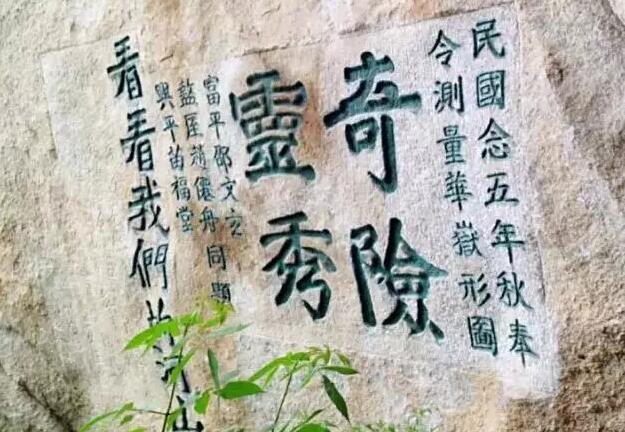 民國念五年秋奉
令測量華嶽形圖
奇險
靈秀
富平
文
同題
興平苗福堂
看看我們的河山